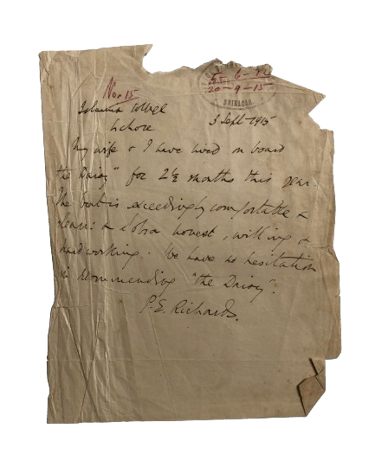 No 15
20-9-15
SRINAGAR
Islamia College
Lahore
3 Sept 1915
My wife & I have lived on board
"the Daisy" for 2½ months this year.
The boat is exceedingly comfortable &
clean: & Sobra honest, willing &
hardworking. We have no hesitation
in recommending "the Daisy".
P.E. Richards.